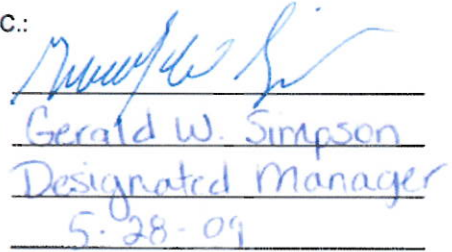 C.:
Gerald W. Simpson
Designated Manager
5-28-09